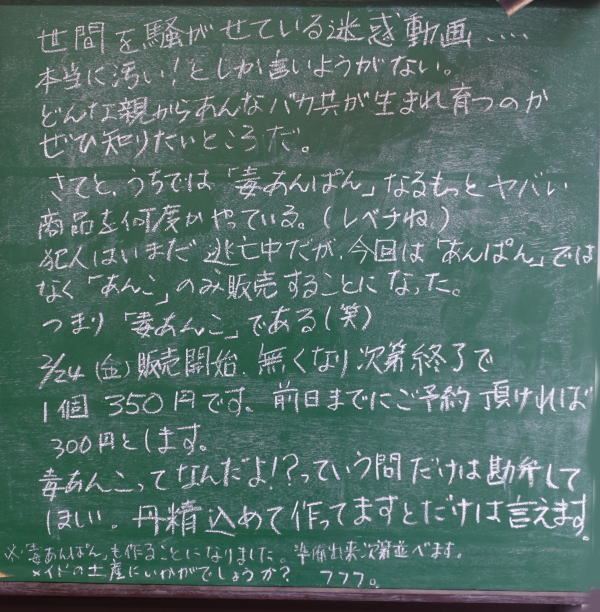 世間を騒がせている迷惑動画....
本当に汚い！としか言いようがない。
どんな親からあんなバカ共が生まれ育つのか
ぜひ知りたいところだ。
さてと、うちでは「毒あんぱん」なるもっとヤバい
商品を何度かやっている。(レベチね)
犯人はいまだ逃亡中だが、今回は「あんぱん」では
なく「あんこ」のみ販売することになった。
つまり「毒あんこ」である(笑)
2/24(金)販売開始、無くなり次第終了で
1個 350円です。前日までにご予約頂ければ
300円とします。
毒あんこってなんだよ!?っていう問だけは勘弁して
ほしい。丹精込めて作ってますとだけは言えます。
※「毒あんぱん」も作ることになりました。準備出来次第並べます。
メイドの土産にいかがでしょうか？ フフフ。